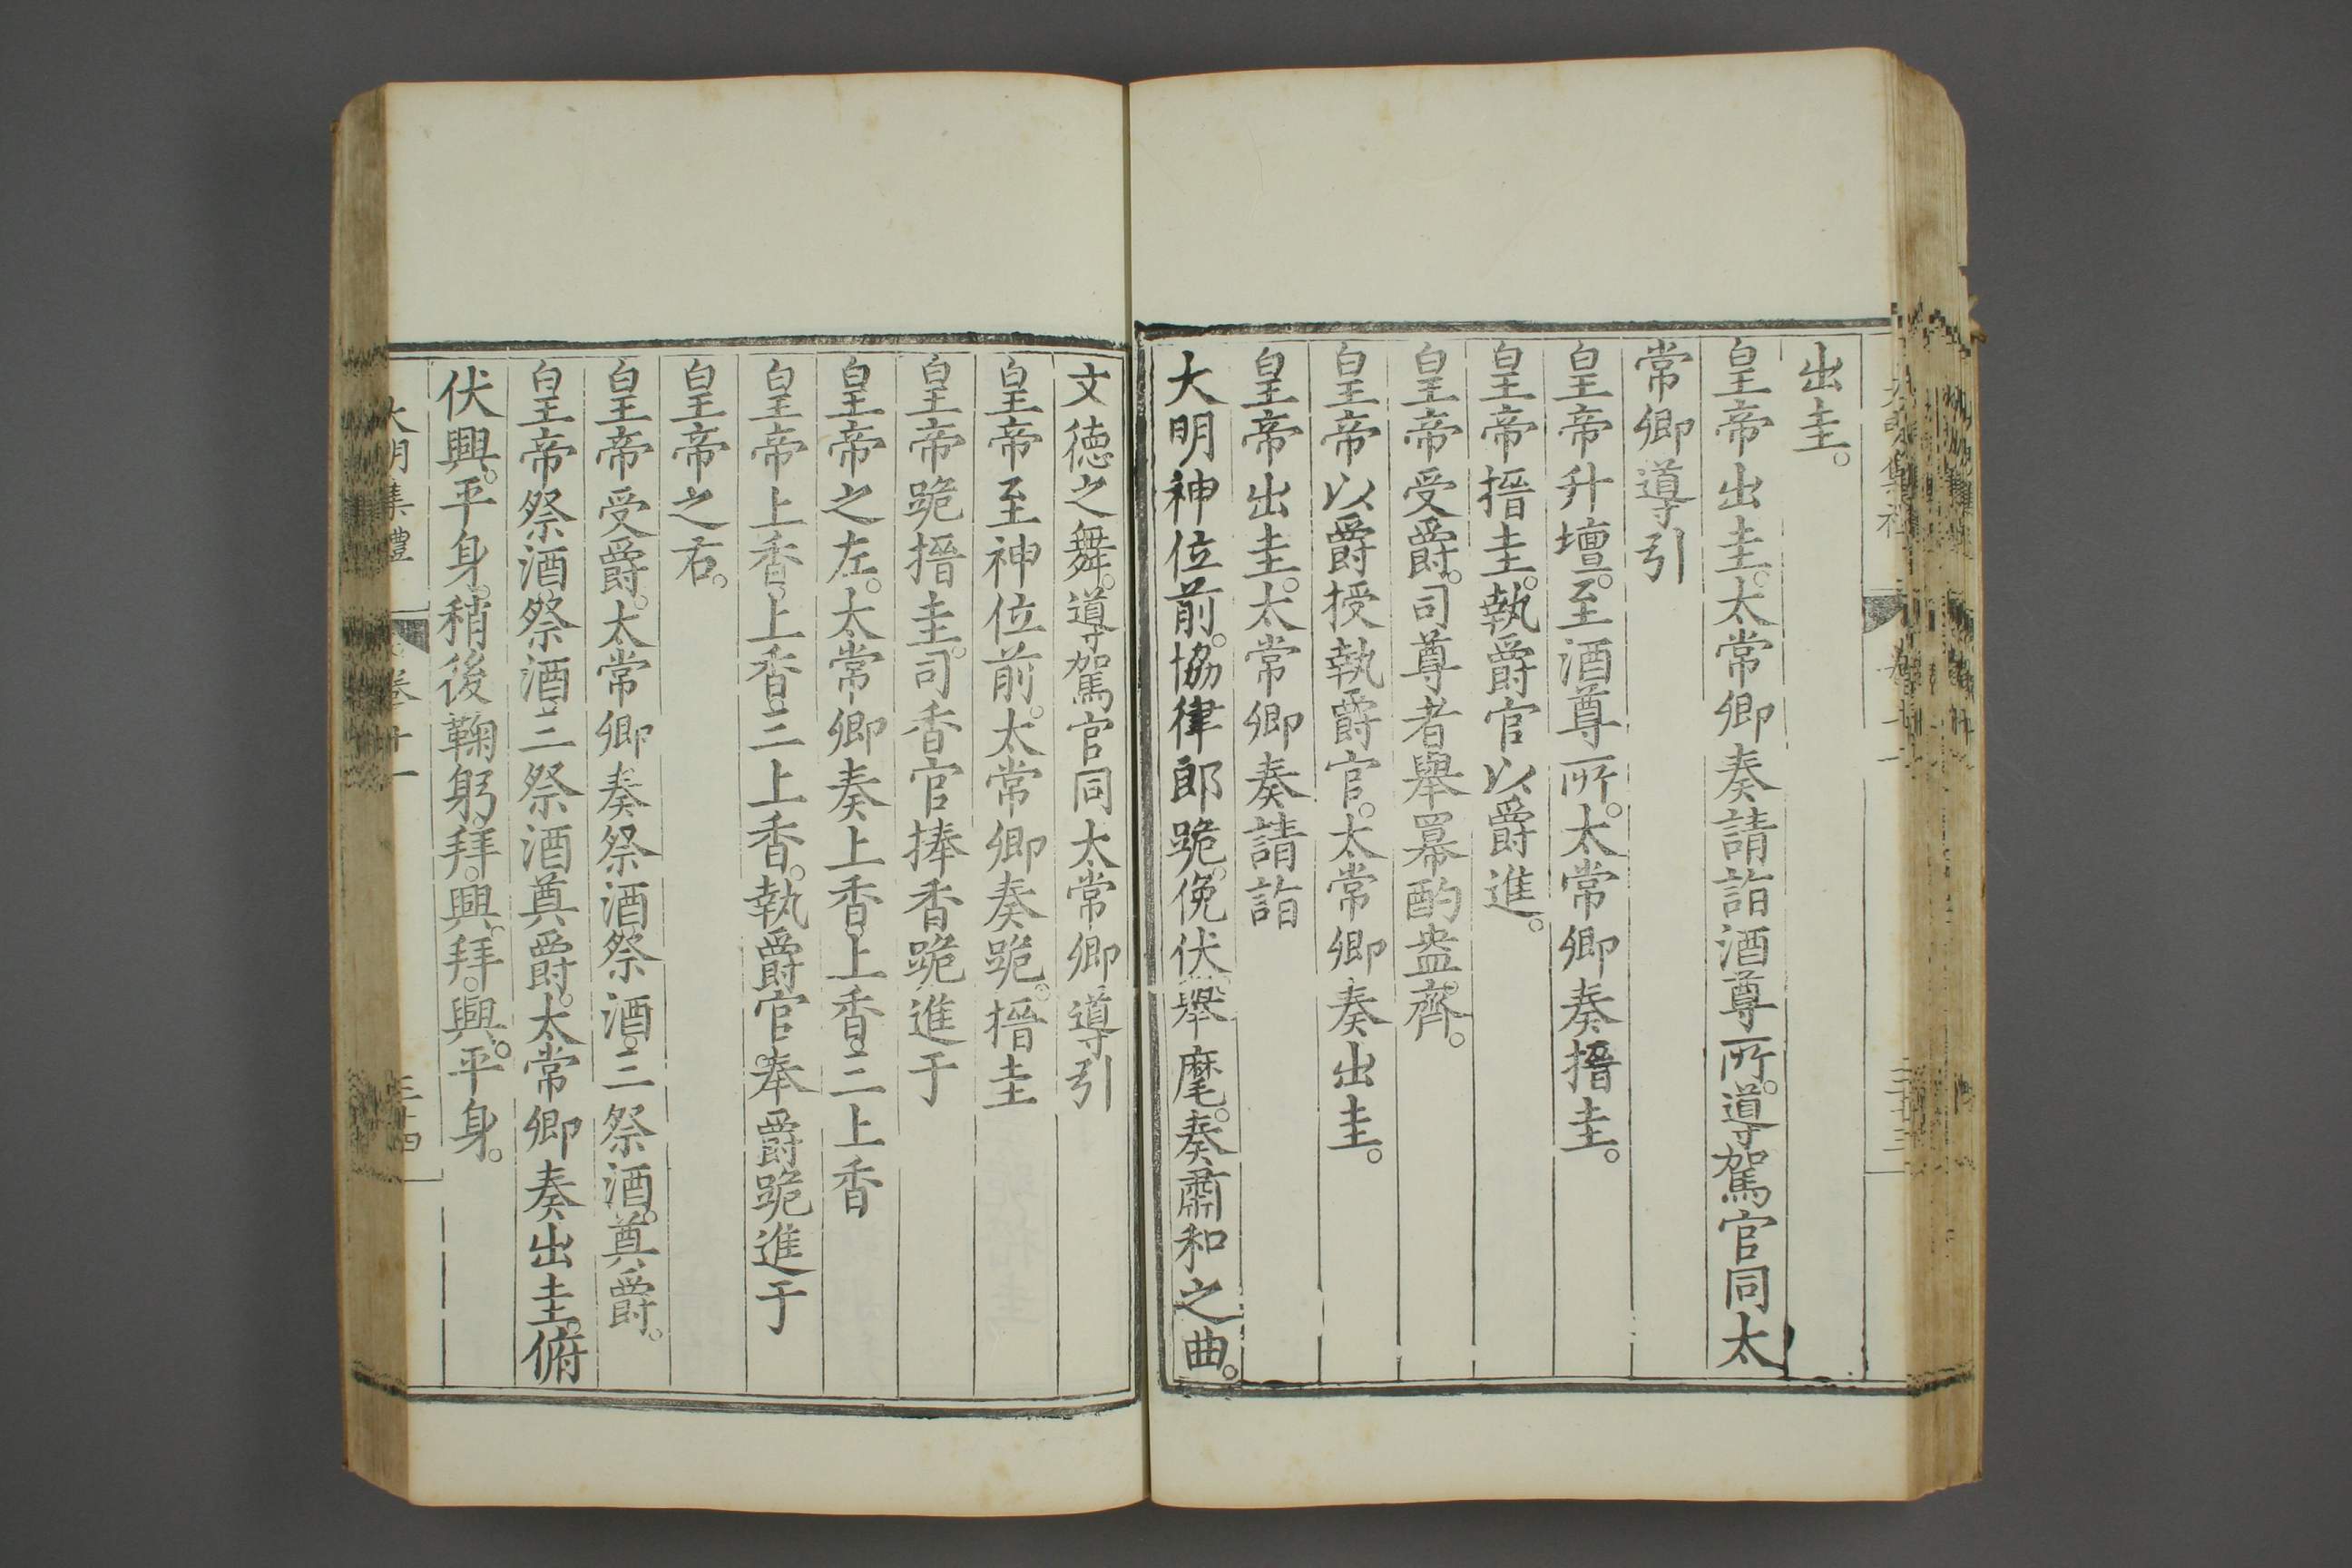 出圭。
皇帝出圭。太常卿奏請詣酒尊所。導駕官同太
常卿導引
皇帝升壇。至酒尊所。太常卿奏搢圭。
皇帝搢圭。執爵官以爵進。
皇帝受爵。司尊者舉羃酌盎齊。
皇帝以爵授執爵官。太常卿奏出圭。
皇帝出圭。太常卿奏請詣
大明神位前。協律郎跪。俛伏舉麾。奏肅和之曲。
文德之舞。導駕官同太常卿導引
皇帝至神位前。太常卿奏跪。搢圭
皇帝跪搢圭。司香官捧香跪進于
皇帝之左。太常卿奏上香。上香。三上香
皇帝上香。上香。三上香。執爵官奉爵跪進于
皇帝之右。
皇帝受爵。太常卿奏祭酒。祭酒。三祭酒。奠爵。
皇帝祭酒。祭酒。三祭酒。奠爵。太常卿奏出圭。俯
伏興。平身。稍後鞠躬。拜。興。拜。興。平身。
大明集禮
卷十一
三十四